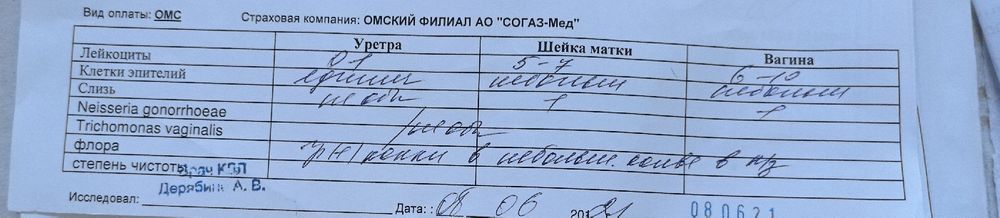 Вид оплаты: ОМС Страховая компания: ОМСКИЙ ФИЛИАЛ АО "СОГАЗ-Мед"
Уретра Шейка матки Вагина
Лейкоциты 0-1 5-7 6-10
Клетки эпителий единич небольш небольш
Слизь не обн + +
Neisseria gonorrhoeae
Trichomonas vaginalis не обн
флора гр(+) кокки в небольш. кол-ве в п/з
степень чистоты
Врач КДЛ
Дерябина А. В.
Исследовал: Дата: : 08 06 2021 080621